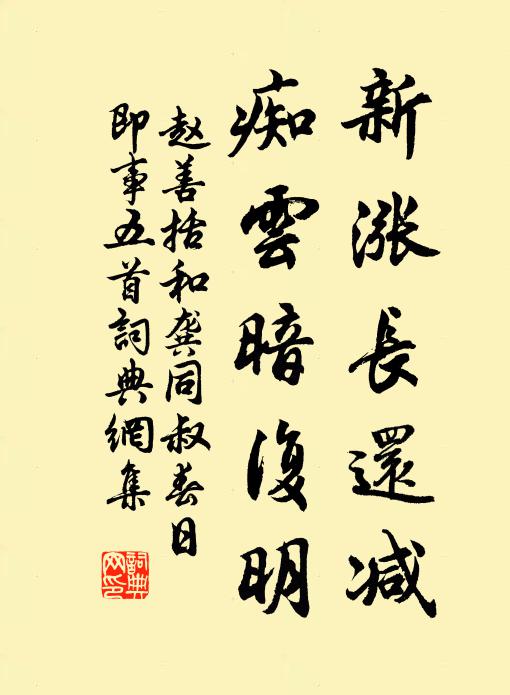 新漲長還減
痴雲暗復明
赵善括和龚同叔春日
即事五首詞典網集
詞典
网印